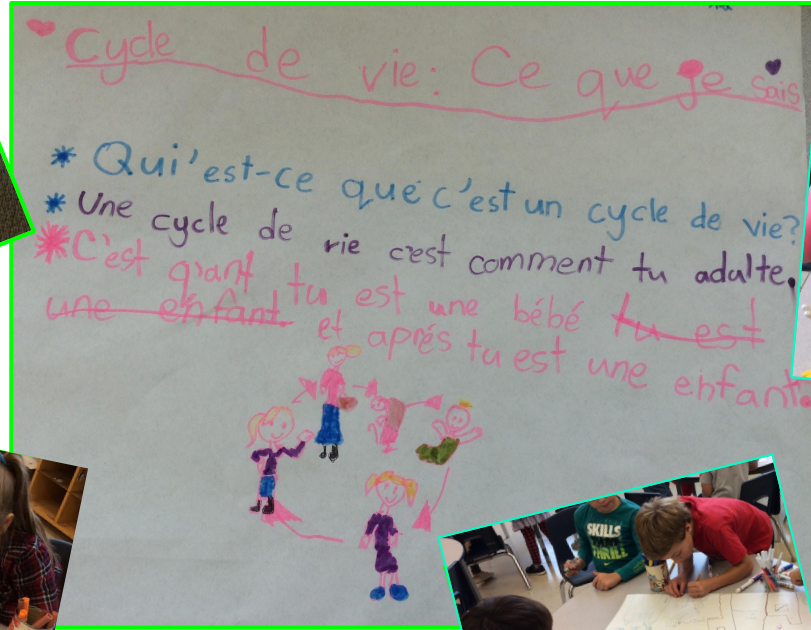 Cycle de vie: Ce que je sais
Qui'est-ce que c'est un cycle de vie?
Une cycle de rie c'est comment tu adulte.
C'est quant tu est une bébé tu est
une enfant. et aprés tu est une enfant.
SKILLS